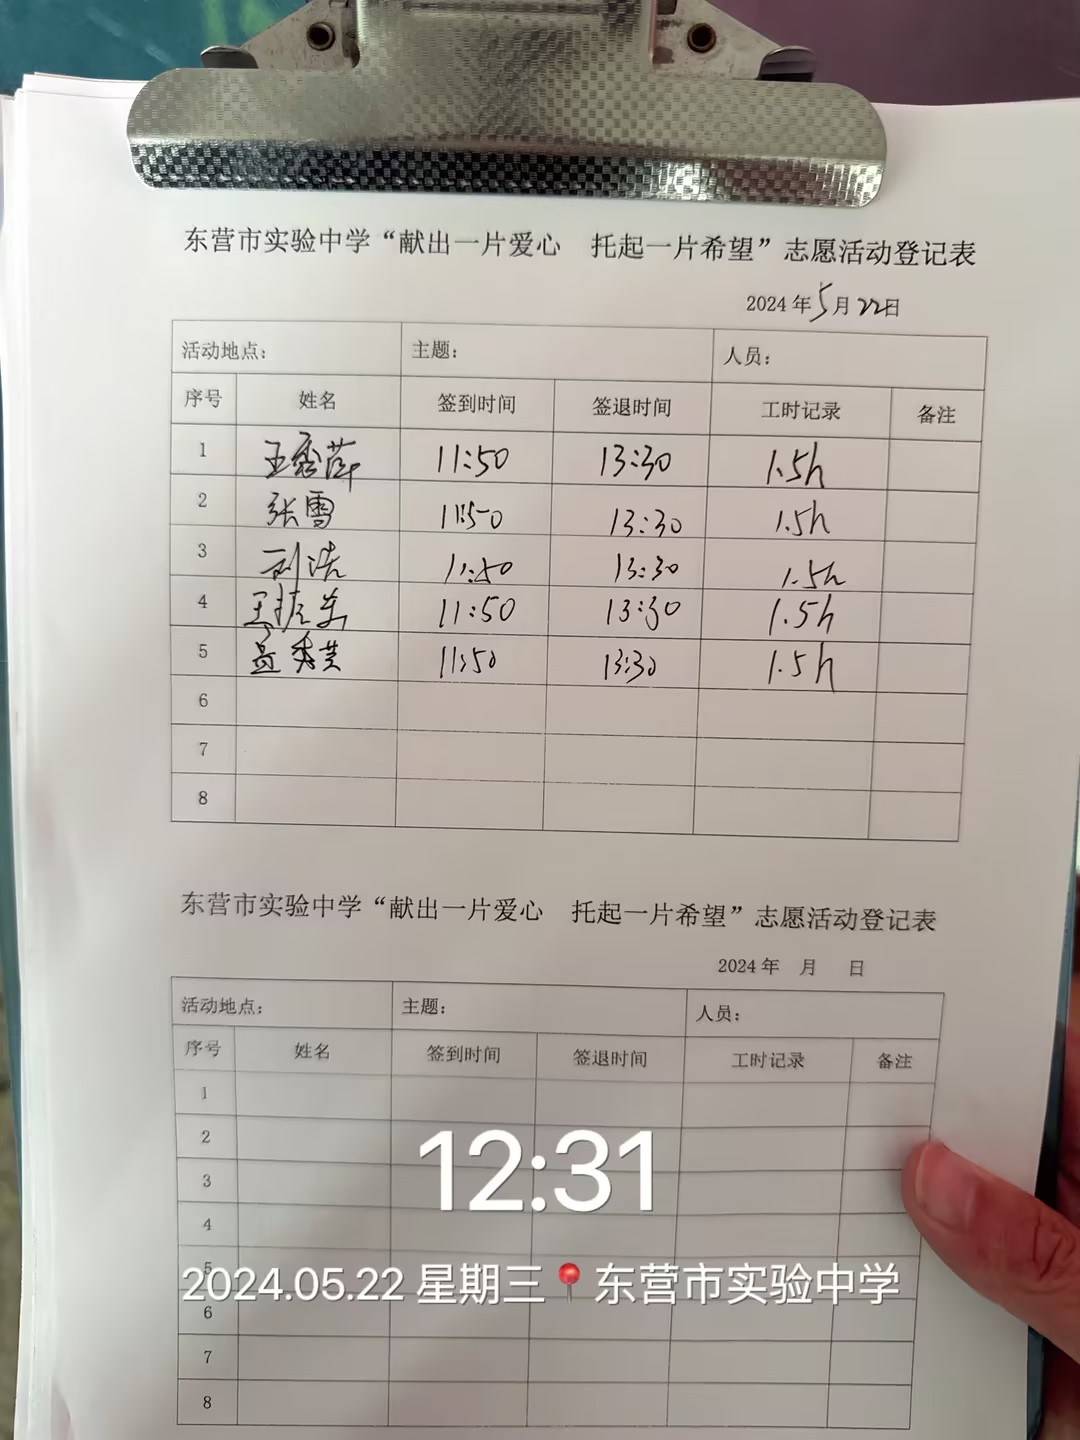 东营市实验中学“献出一片爱心 托起一片希望”志愿活动登记表
2024年5月22日
活动地点: 主题: 人员:
序号 姓名 签到时间 签退时间 工时记录 备注
1 王秀萍 11:50 13:30 1.5h
2 张雪 11:50 13:30 1.5h
3 刘浩 11:50 13:30 1.5h
4 王 11:50 13:30 1.5h
5 孟秀芸 11:50 13:30 1.5h
6
7
8
东营市实验中学“献出一片爱心 托起一片希望”志愿活动登记表
2024年 月 日
活动地点: 主题: 人员:
序号 姓名 签到时间 签退时间 工时记录 备注
1
2
3
4
5
6
7
8
12:31
2024.05.22 星期三 东营市实验中学